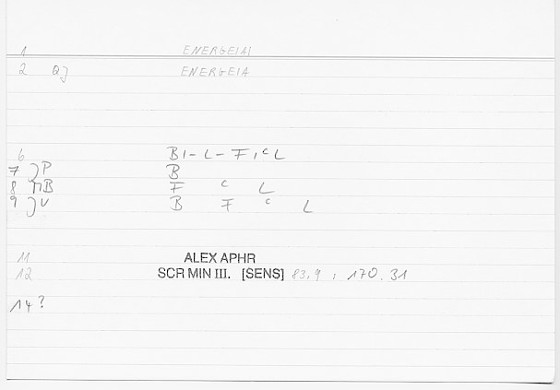 1 ENERGEIAI
2 QJ ENERGEIA
6 B I - L - F I C L
7 JP B
8 ΠB F C L
9 JV B F C L
11 ALEX APHR
12 SCR MIN III. [SENS] 83,9 , 170.31
14?